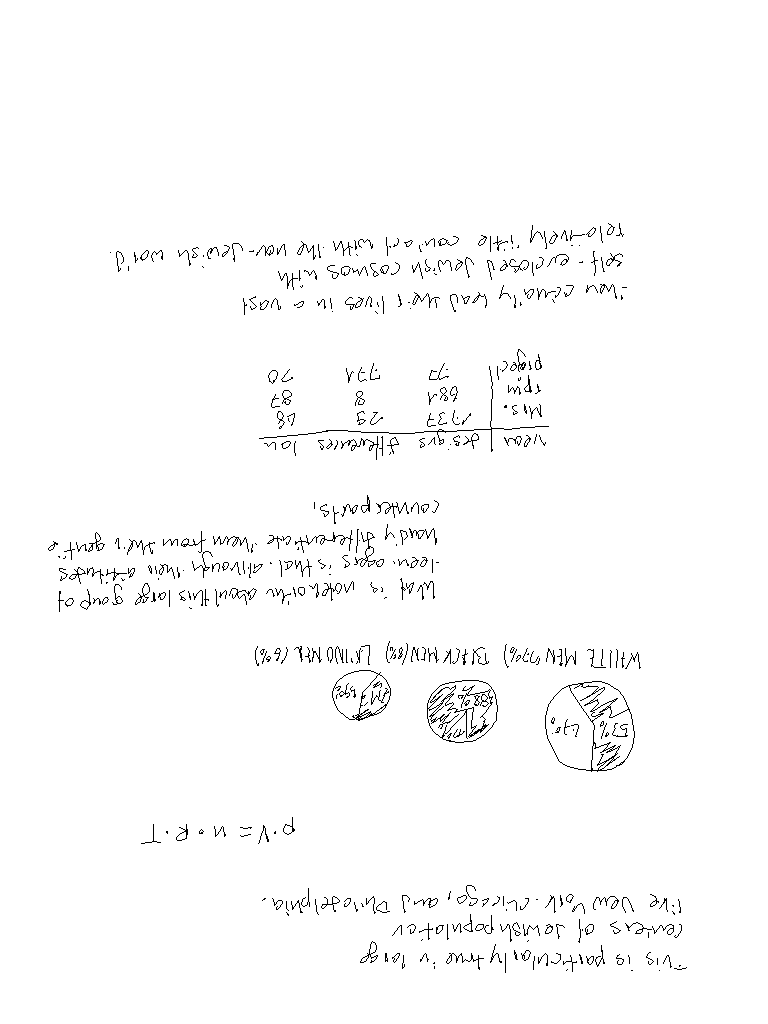 This is particularly true in large
centers of Jewish population
like New York, Chicago, and Philadelphia.
p·V = n·R·T
53% 47% 88% 59%
WHITE MEN 77%) BLACK MEN (8%) LATINO MEN (6%)
What is noteworthy about this large group of
teen-agers is that, although their attitudes
hardly differentiate them from their gentile
counterparts,
near designs differences Ian
Mrs. 1737 29 48
rpm 681 8 87
project 77 771 70
they actually lead their lives in a vast
self-enclosed Jewish cosmos with
relatively little contact with the non-Jewish world.